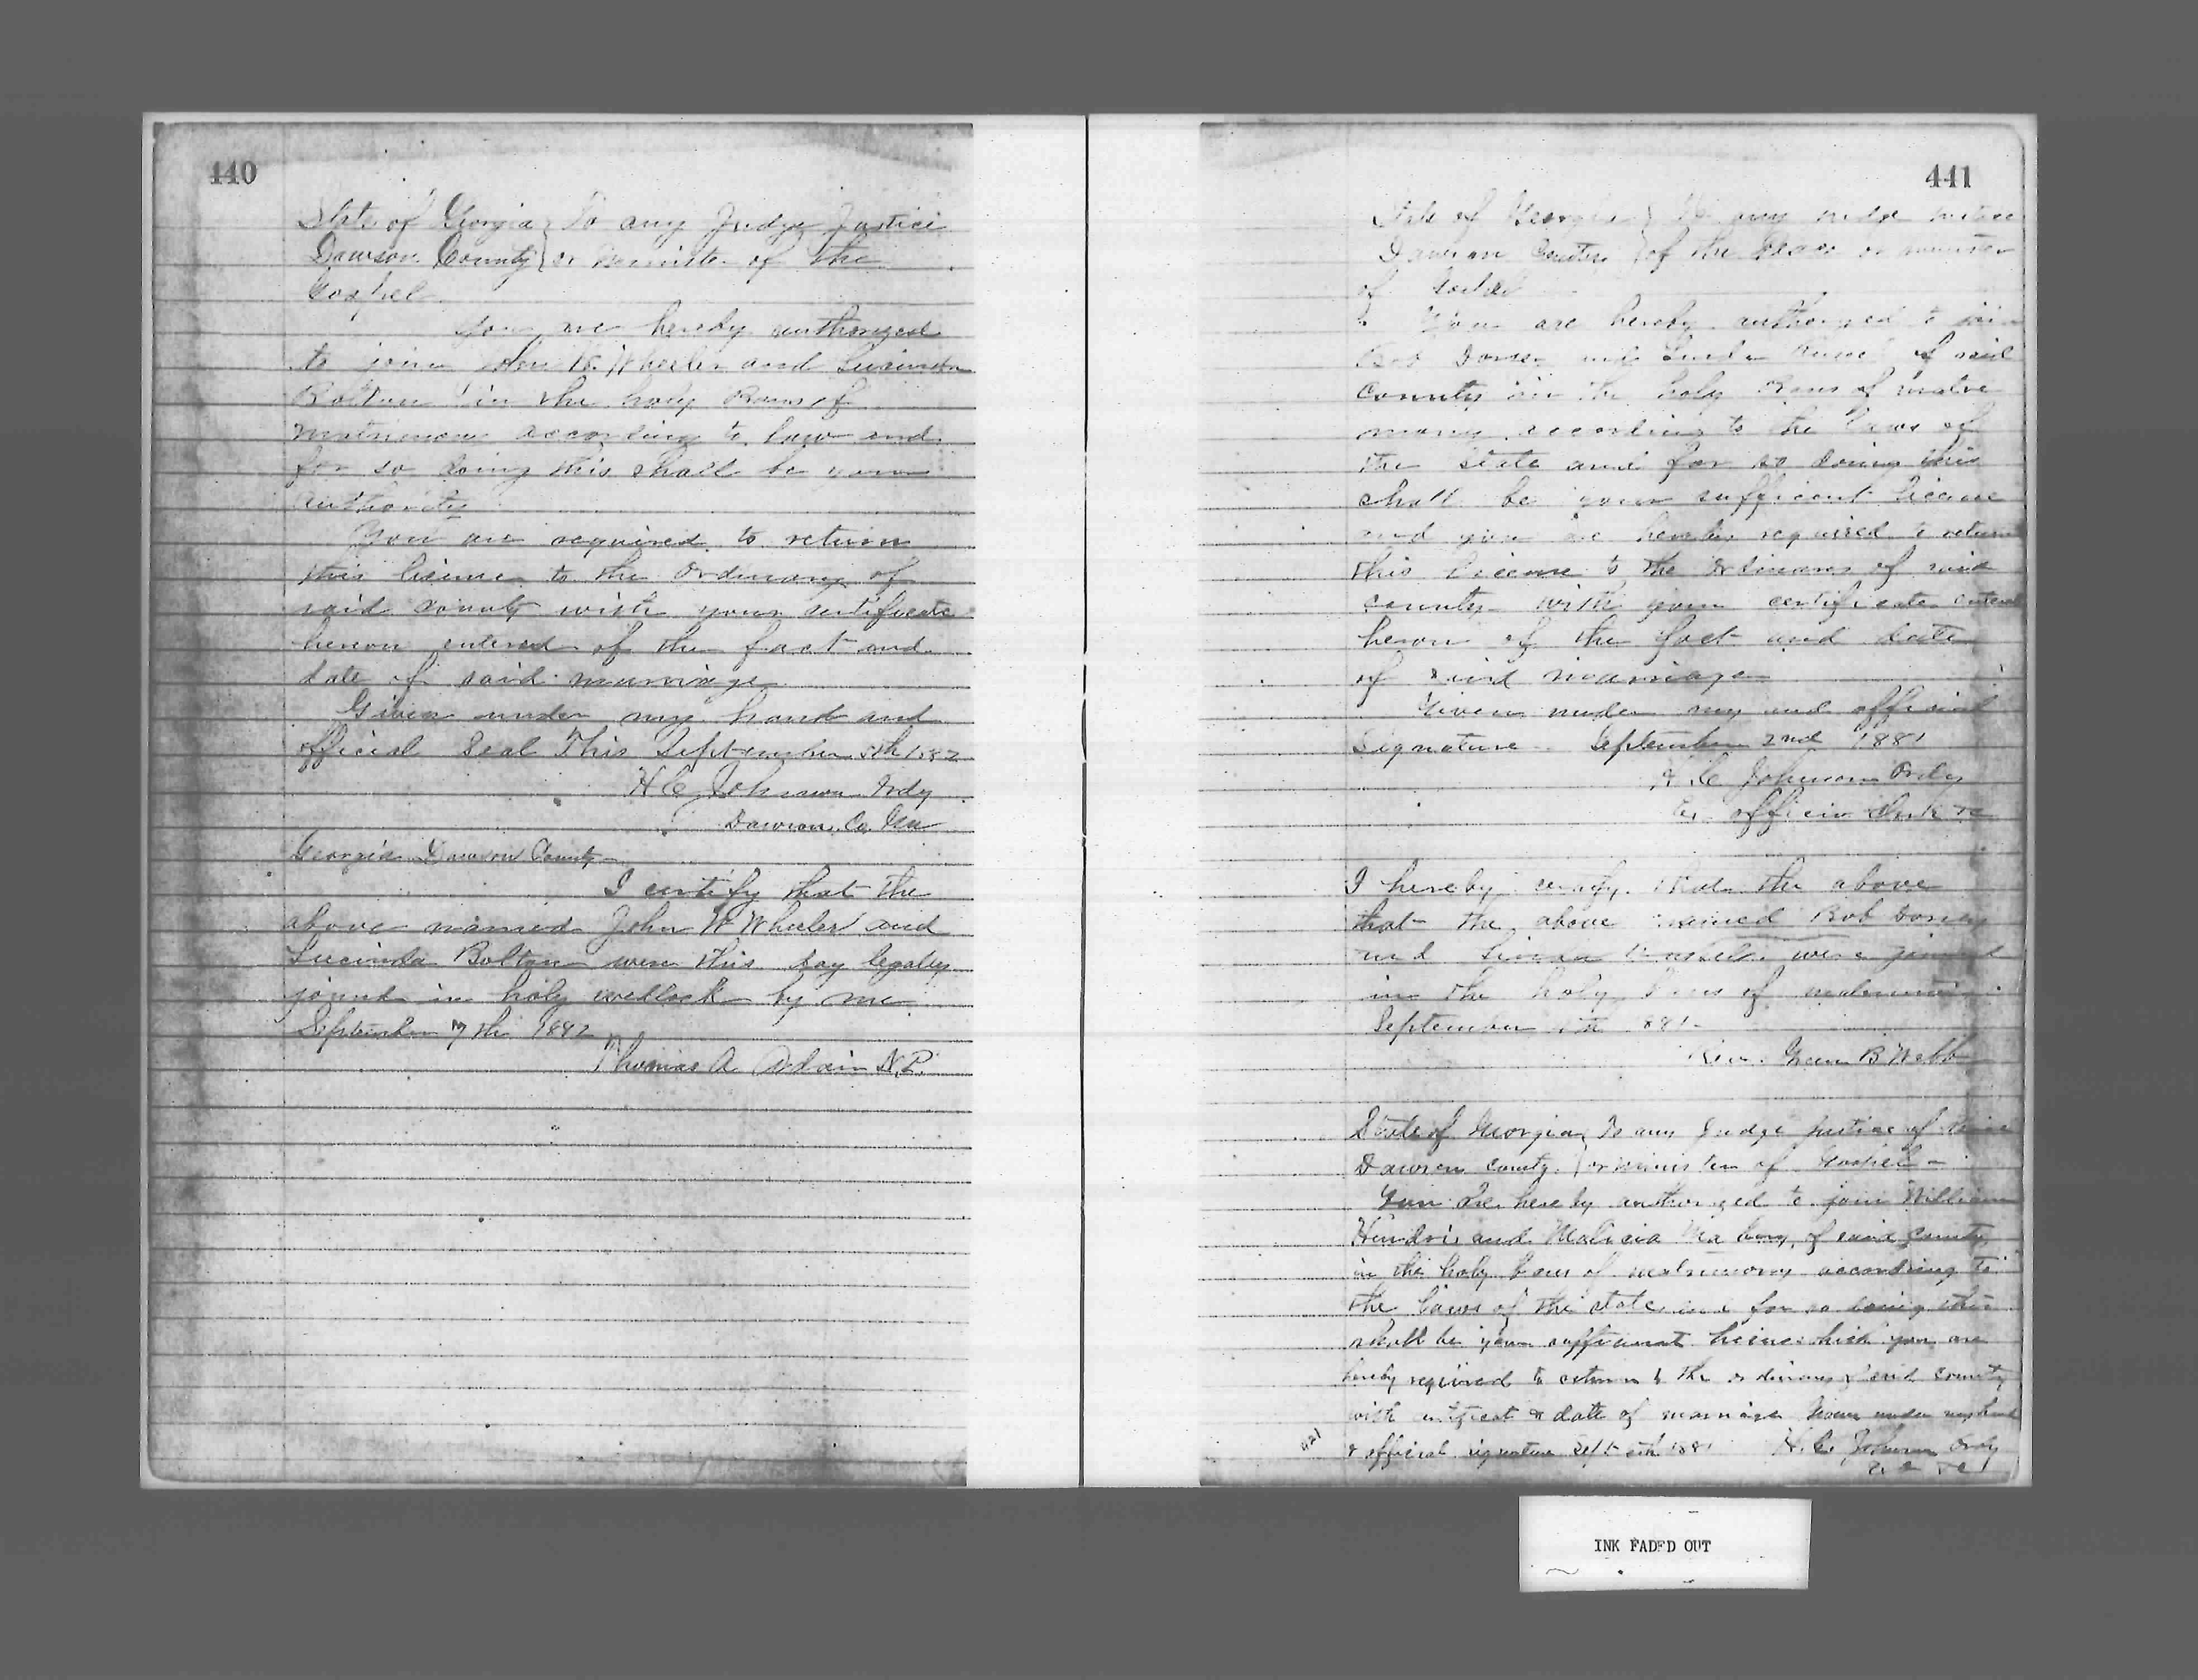 440
State of Georgia } To any Judge Justice
Dawson County } or Minister of the
Gospel
You are hereby authorized
to join John W. Wheeler and Lucinda
Bolton in the holy Bans of
matrimony according to law and
for so doing this shall be your
authority
You are required to return
this license to the Ordinary of
said County with your certificate
hereon entered of the fact and
date of said marriage
Given under my hand and
official Seal This September 5th 1882
H C Johnson Ordy
Dawson Co Ga
Georgia Dawson County
I certify that the
above named John W Wheeler and
Lucinda Bolton were this day legally
joined in holy wedlock by me
September 7th 1882
Thomas A Adair N.P.
441
State of Georgia } To any Judge Justice
Dawson County } of the Peace or minister
of Gospel
You are hereby authorized to join
and of said
County in the holy Bans of matri
mony according to the laws of
the State and for so doing this
shall be your sufficient license
and you are hereby required to return
this License to the Ordinary of said
County with your certificate entered
hereon of the fact and date
of said marriage
Given under my and official
Signature September 2nd 1881
H C Johnson Ordy
Ex officio Clerk
I hereby certify that the above
that the above named Bob Dorsey
and were joined
in the holy Bans of matrimony
September 1881
Rev. Green B Webb
State of Georgia } To any Judge Justice of Peace
Dawson County } or Minister of Gospel
You are hereby authorized to join William
Hendrix and Malicia of said County
in the holy bans of matrimony according to
the laws of the state and for so doing this
shall be your sufficient license which you are
hereby required to return to the ordinary of said County
with certificat & date of marriage Given under my hand
& official signature Sept 1881 H. C. Johnson Ordy
421
INK FADED OUT